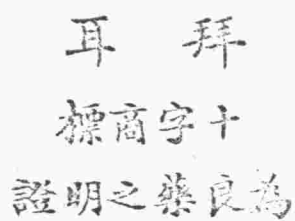 拜耳
十字商標
為良藥之證明